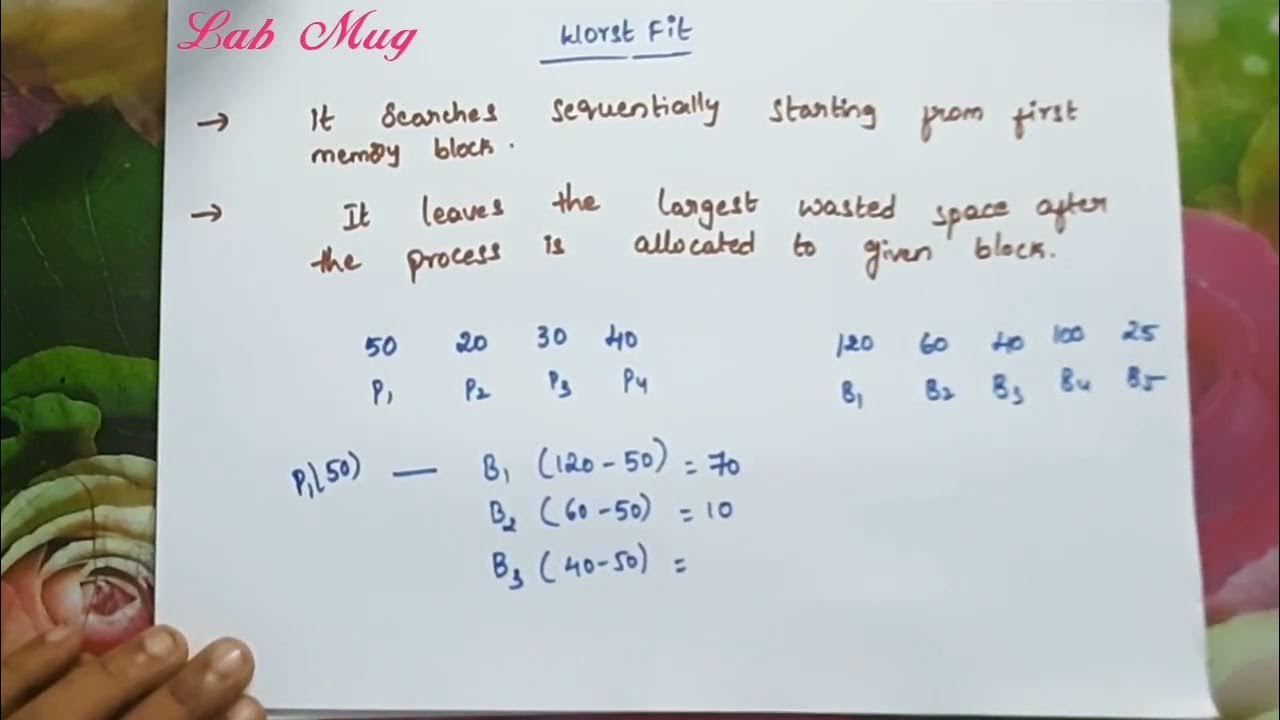 Lab Mug
Worst Fit
→ It searches sequentially starting from first
memory block.
→ It leaves the largest wasted space after
the process is allocated to given block.
50 20 30 40 120 60 40 100 25
P1 P2 P3 P4 B1 B2 B3 B4 B5
P1(50) — B1 (120-50) = 70
B2 (60-50) = 10
B3 (40-50) =